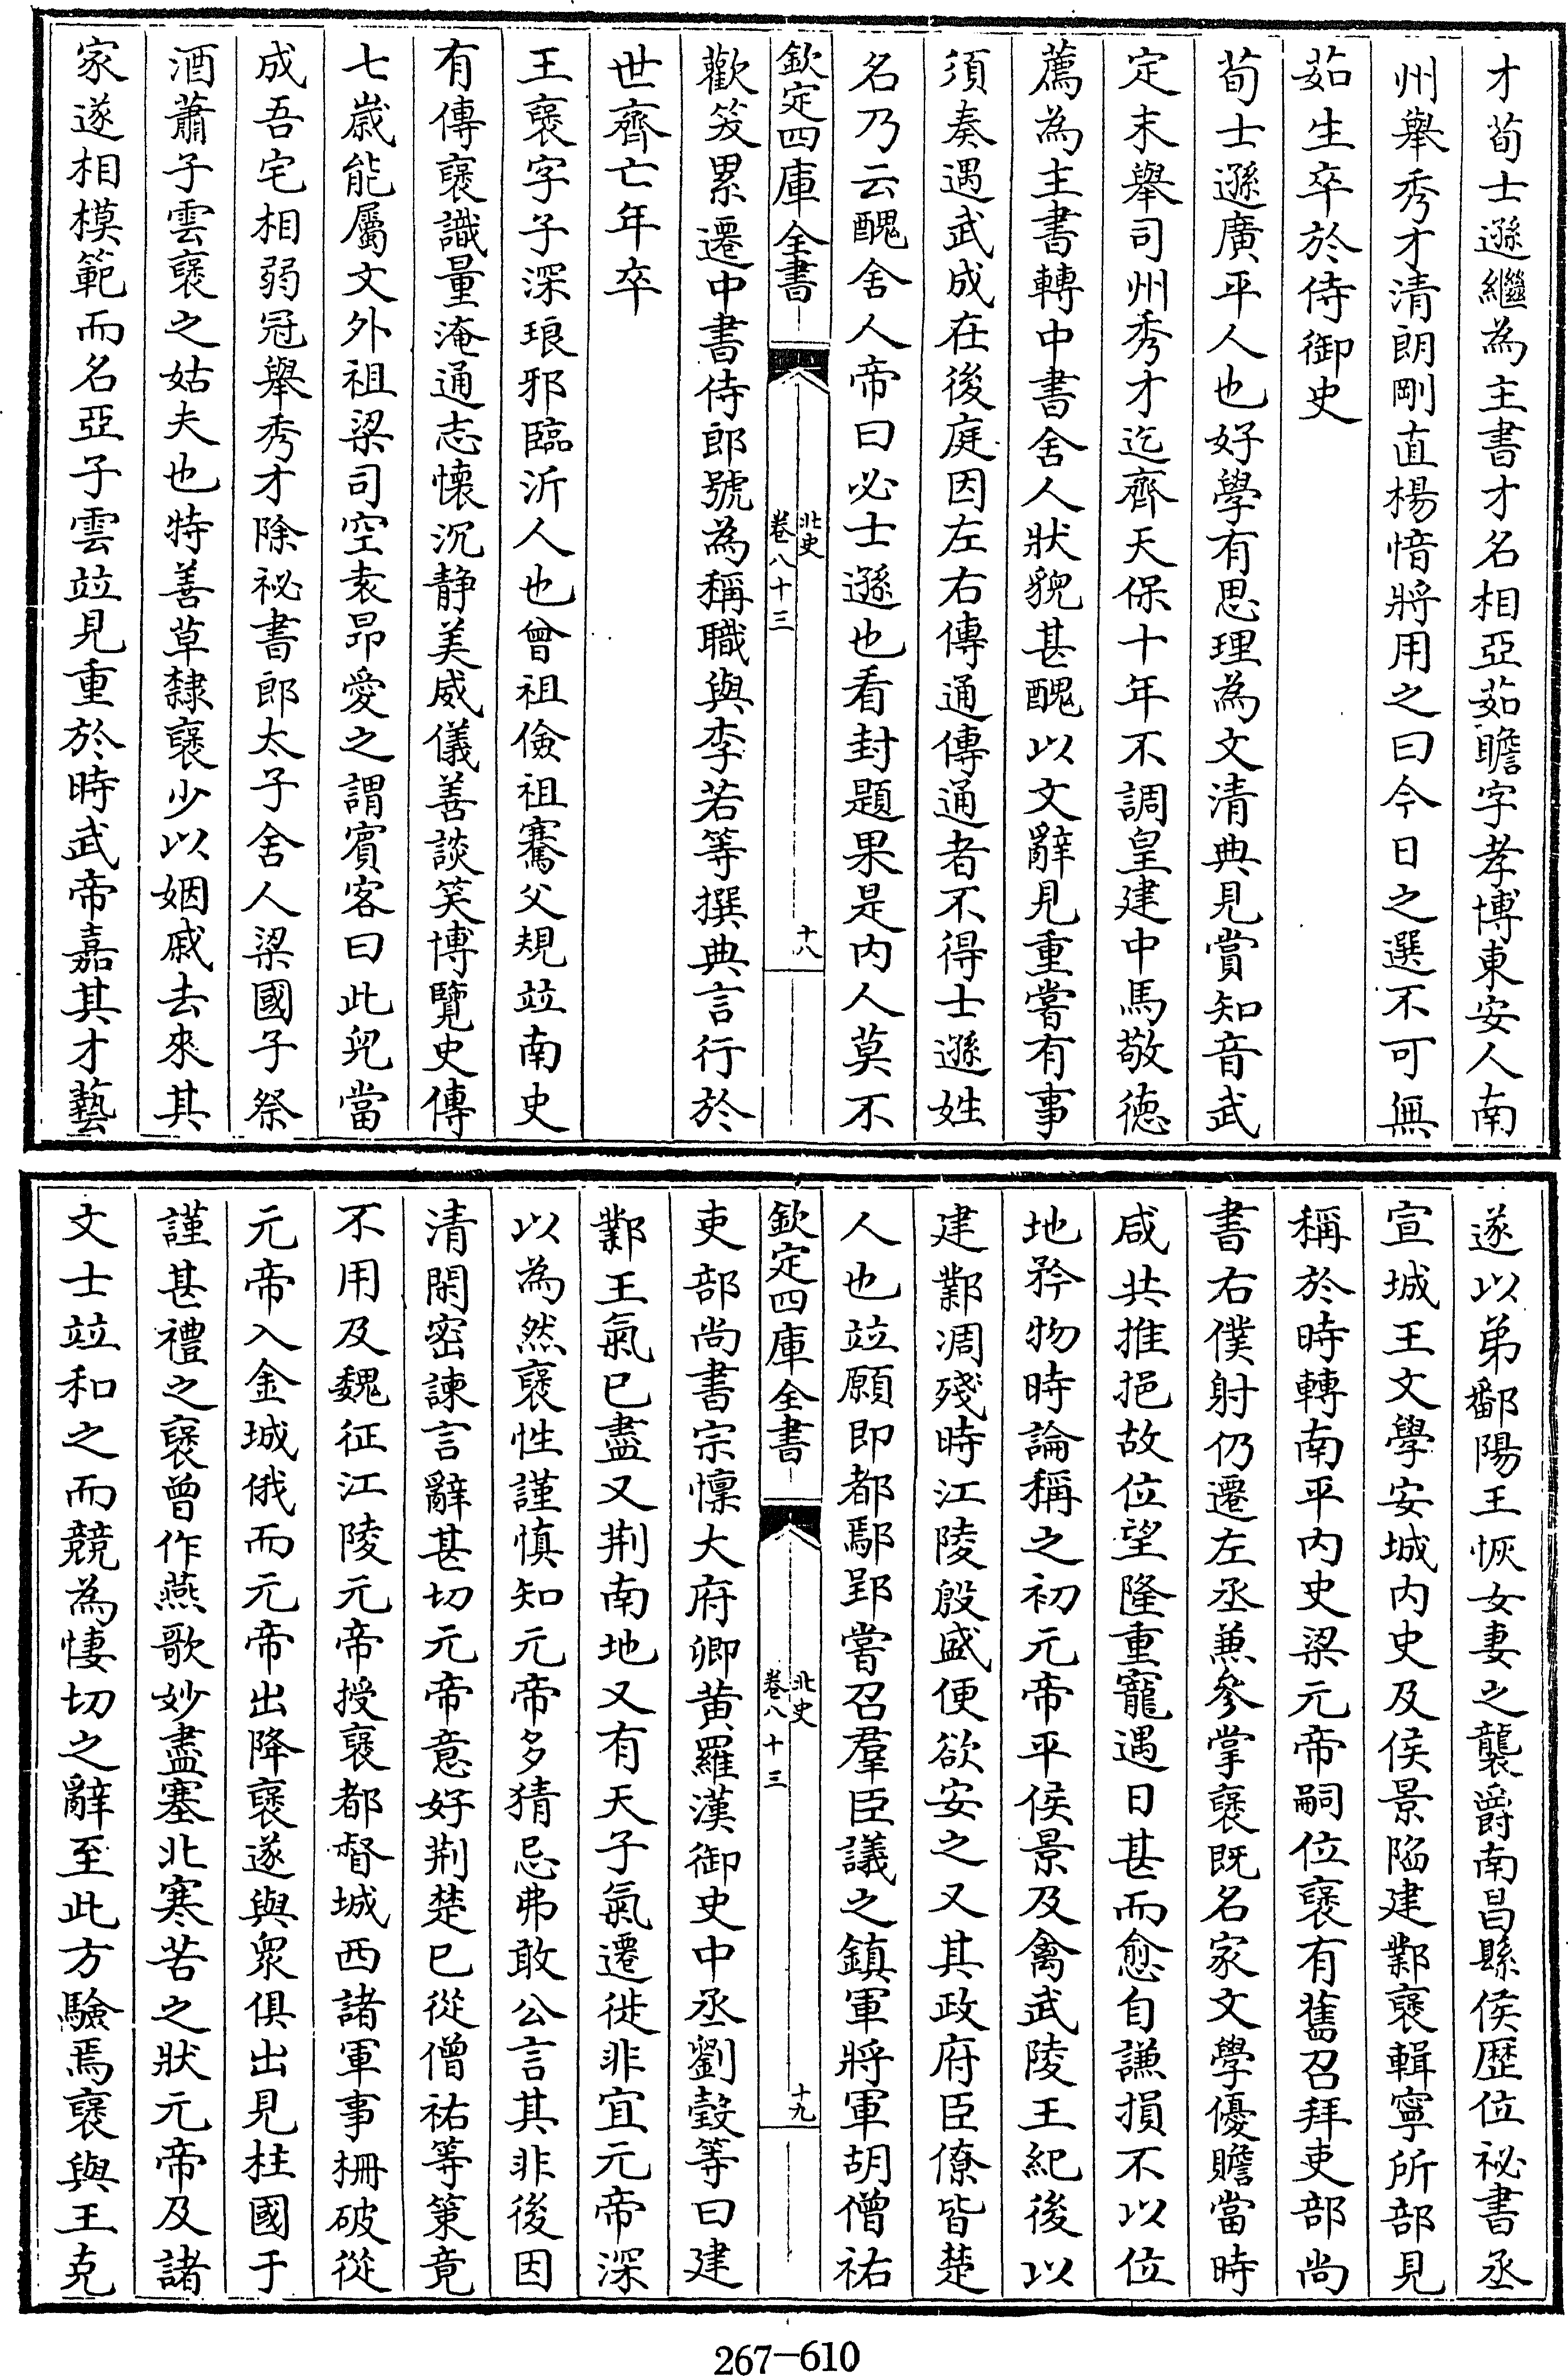 才荀士遜繼為主書才名相亞茹瞻字孝博東安人南
州舉秀才清朗剛直楊愔將用之曰今日之選不可無
茹生卒於侍御史
荀士遜廣平人也好學有思理為文清典見賞知音武
定末舉司州秀才迄齊天保十年不調皇建中馬敬德
薦為主書轉中書舍人狀貌甚醜以文辭見重嘗有事
須奏遇武成在後庭因左右傳通傳通者不得士遜姓
名乃云醜舍人帝曰必士遜也看封題果是内人莫不
欽定四庫全書
北史
卷八十三
十八
歡笑累遷中書侍郎號為稱職與李若等撰典言行於
世齊亡年卒
王褒字子深琅邪臨沂人也曾祖儉祖騫父規竝南史
有傳褒識量淹通志懷沉静美威儀善談笑博覽史傳
七歲能屬文外祖梁司空袁昂愛之謂賓客曰此兒當
成吾宅相弱冠舉秀才除祕書郎太子舍人梁國子祭
酒蕭子雲褒之姑夫也特善草隸褒少以姻戚去來其
家遂相模範而名亞子雲竝見重於時武帝嘉其才藝
遂以弟鄱陽王恢女妻之襲爵南昌縣侯歴位祕書丞
宣城王文學安城内史及侯景陷建鄴褒輯寧所部見
稱於時轉南平内史梁元帝嗣位褒有舊召拜吏部尚
書右僕射仍遷左丞兼參掌褒既名家文學優贍當時
咸共推挹故位望隆重寵遇日甚而愈自謙損不以位
地矜物時論稱之初元帝平侯景及禽武陵王紀後以
建鄴凋殘時江陵殷盛便欲安之又其政府臣僚皆楚
人也竝願即都鄢郢嘗召羣臣議之鎮軍將軍胡僧祐
欽定四庫全書
北史
卷八十三
十九
吏部尚書宗懍大府卿黄羅漢御史中丞劉瑴等曰建
鄴王氣已盡又荆南地又有天子氣遷徙非宜元帝深
以為然褒性謹慎知元帝多猜忌弗敢公言其非後因
清閑密諫言辭甚切元帝意好荆楚已從僧祐等策竟
不用及魏征江陵元帝授褒都督城西諸軍事柵破從
元帝入金城俄而元帝出降褒遂與衆俱出見柱國于
謹甚禮之褒曾作燕歌妙盡塞北寒苦之狀元帝及諸
文士竝和之而競為悽切之辭至此方驗焉褒與王克
267-610